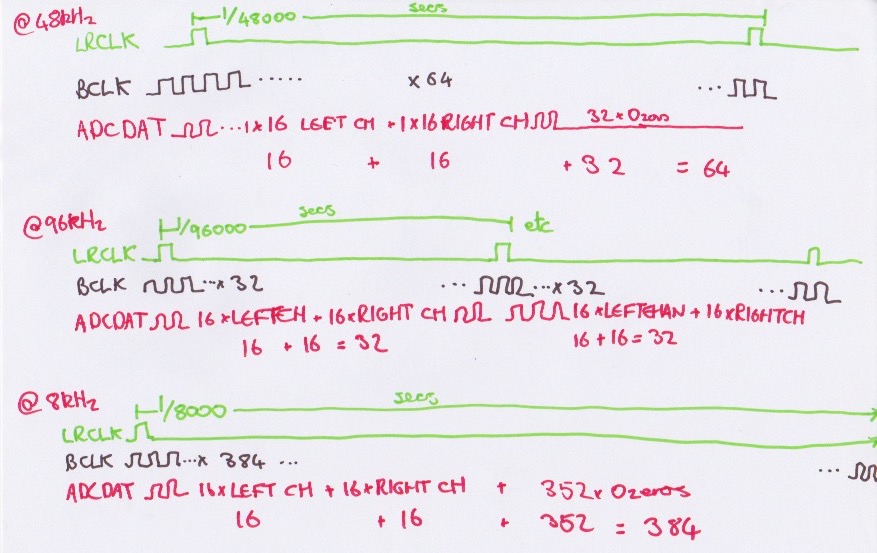 @48kHz
1/48000 secs
LRCLK
BCLK ..... x 64 ...
ADCDAT ...1x16 LEFT CH + 1x16 RIGHT CH 32x0zeros
16 + 16 + 32 = 64
@96kHz
1/96000 secs etc
LRCLK
BCLK ...x 32 ... ...x 32 ...
ADCDAT 16xLEFTCH + 16xRIGHT CH 16xLEFTCHAN + 16xRIGHTCH
16 + 16 = 32 16+16=32
@8kHz
1/8000 secs
LRCLK
BCLK ...x 384 ... ...
ADCDAT 16xLEFT CH + 16xRIGHT CH + 352x0zeros
16 + 16 + 352 = 384